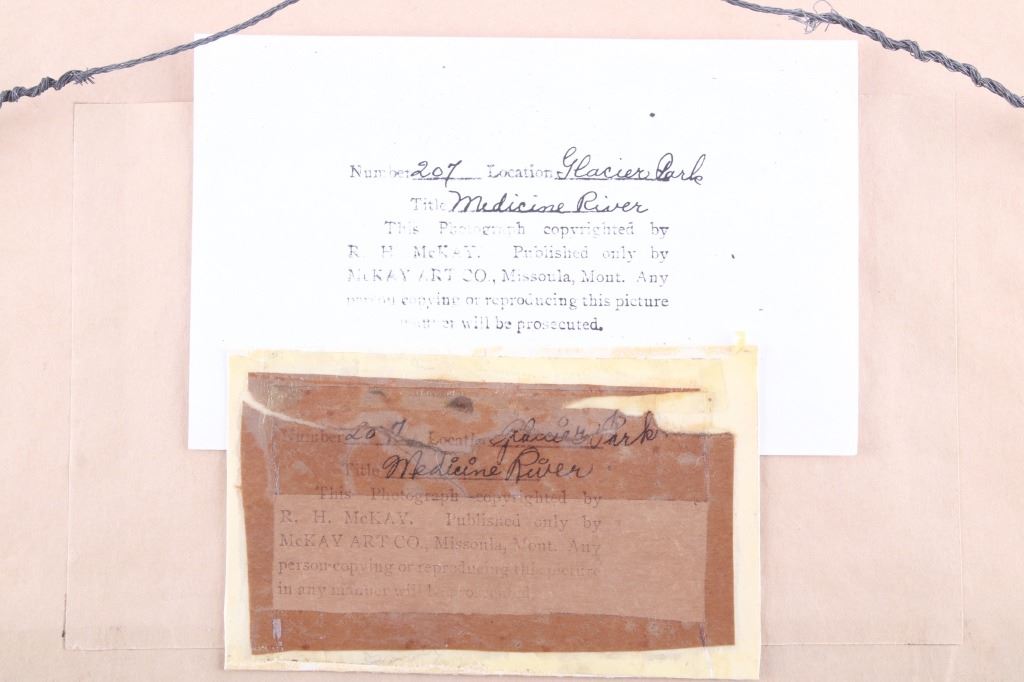 Number 207 Location Glacier Park
Title Medicine River
This Photograph copyrighted by
R. H. McKAY. Published only by
McKAY ART CO., Missoula, Mont. Any
person copying or reproducing this picture
manner will be prosecuted.
Number 207 Location Glacier Park
Title Medicine River
This Photograph copyrighted by
R. H. McKAY. Published only by
McKAY ART CO., Missoula, Mont. Any
person copying or reproducing this picture
in any manner will be prosecuted.